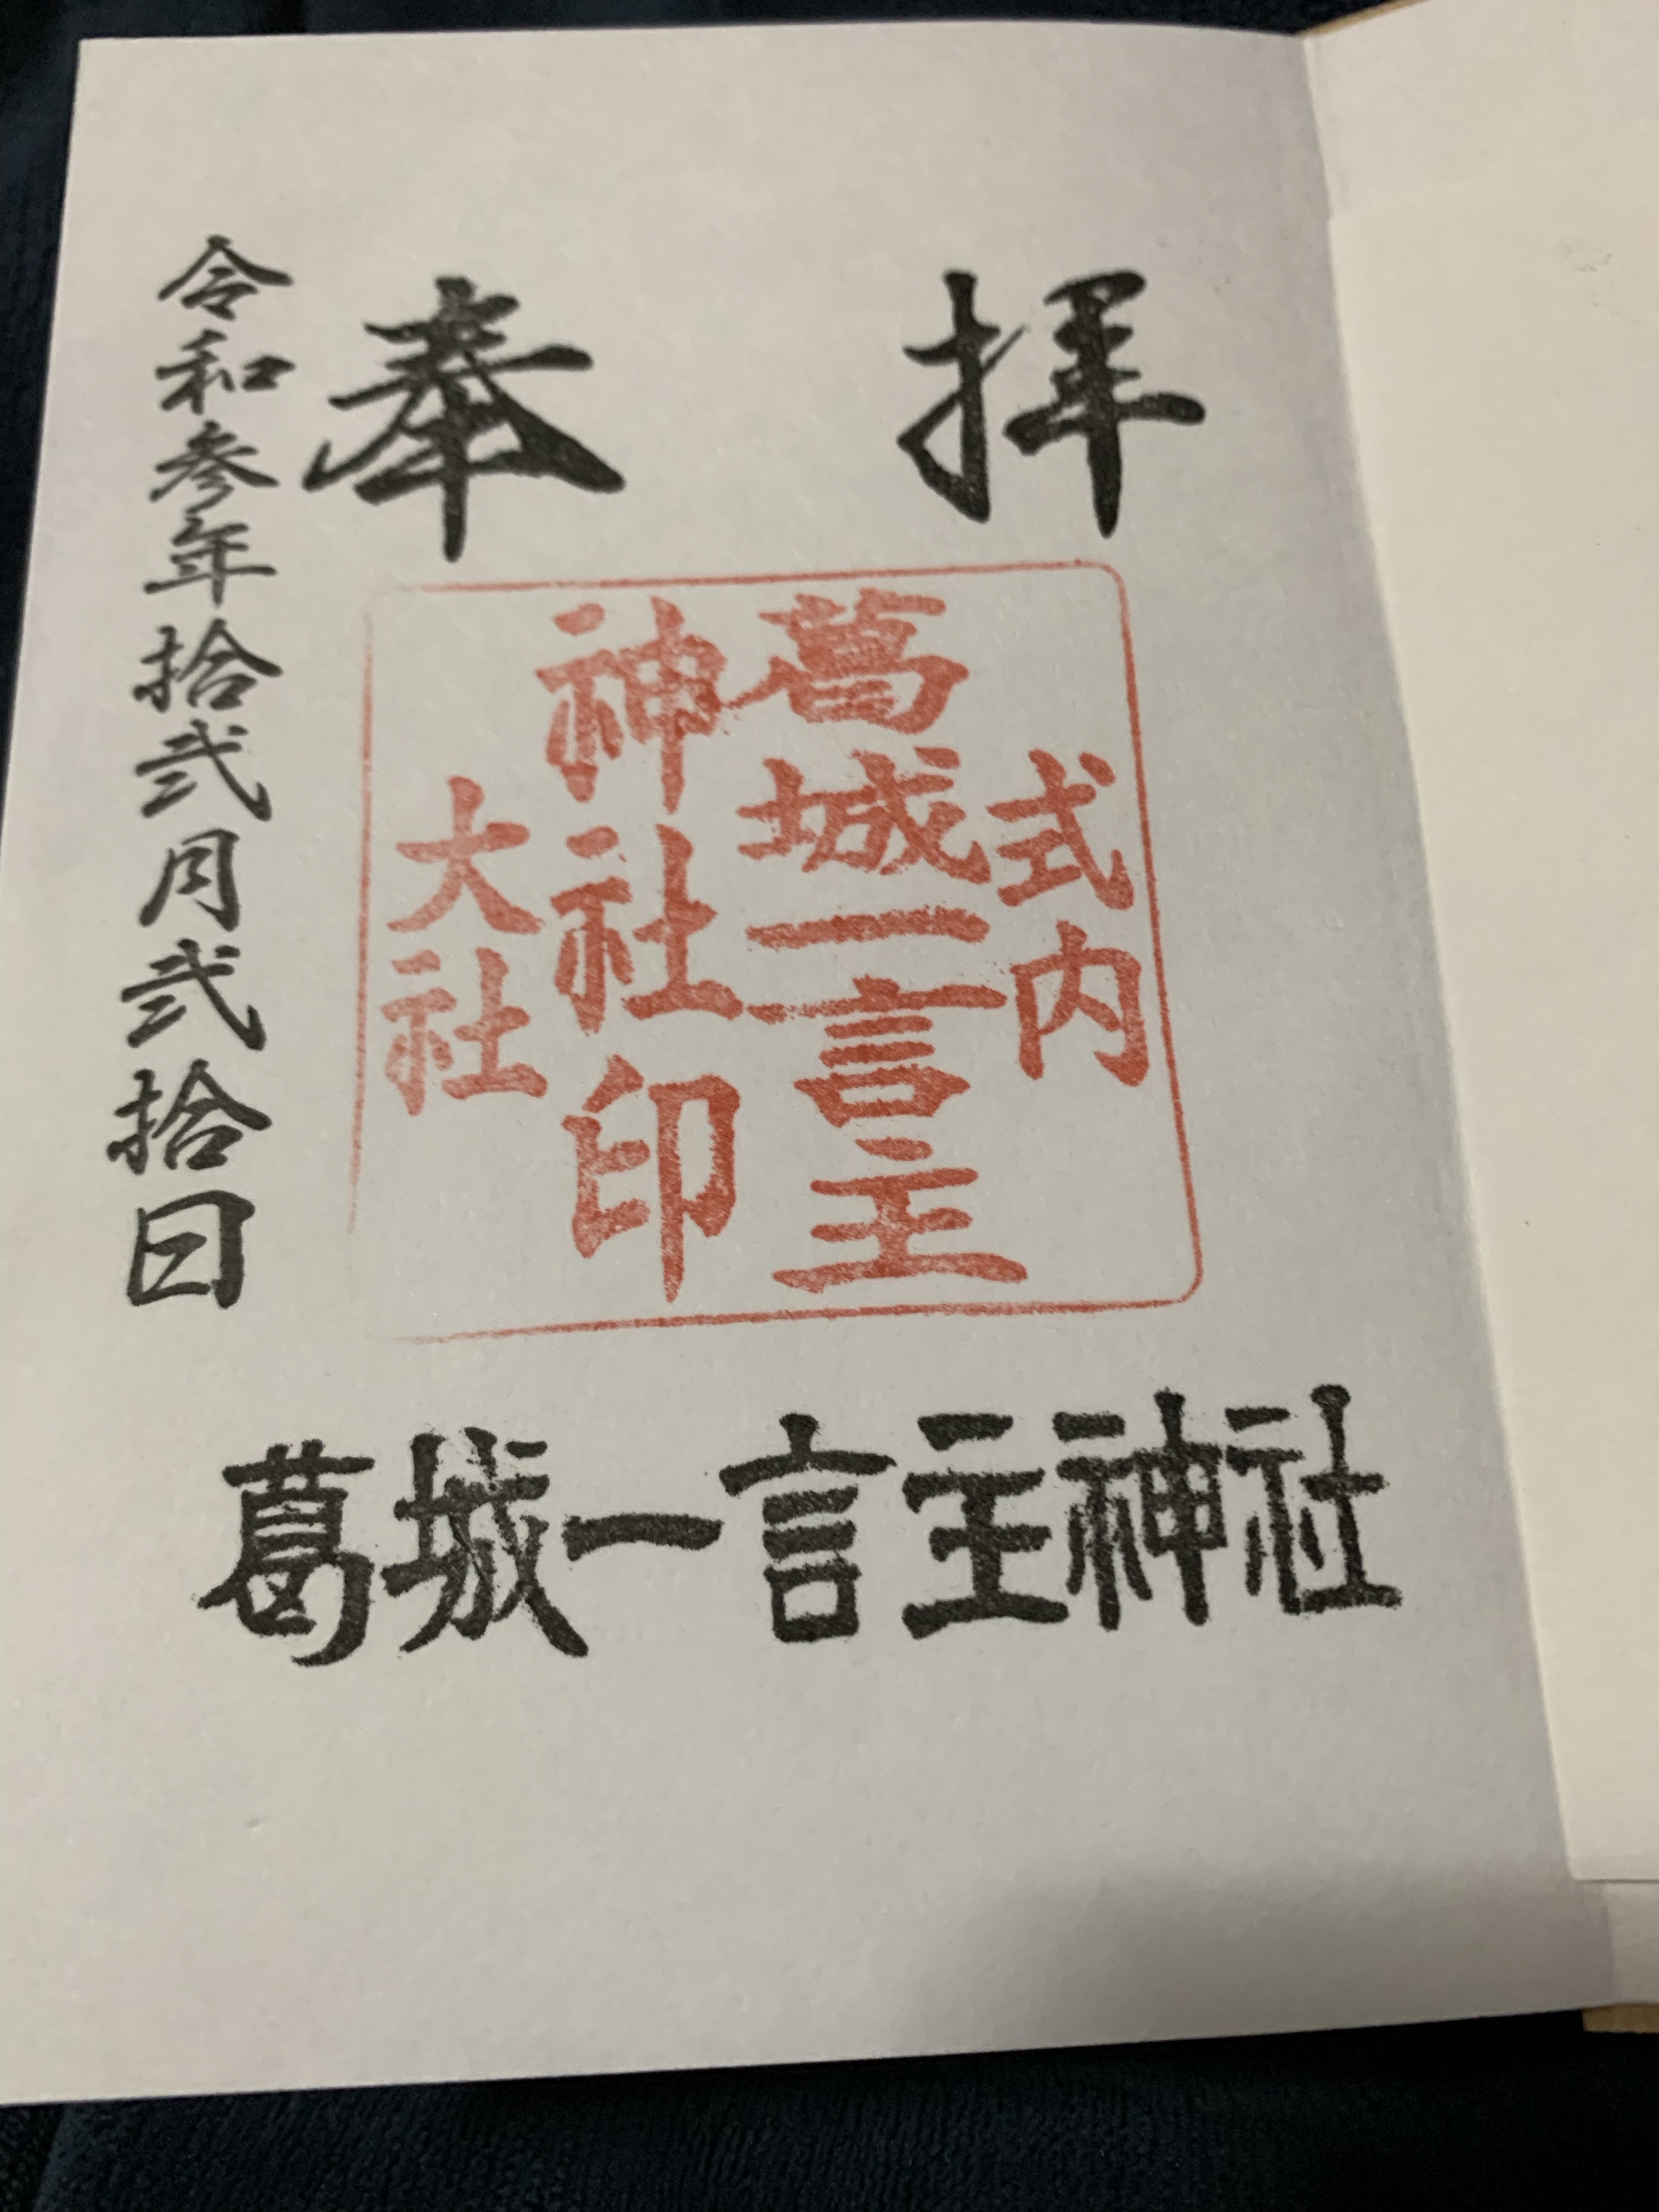 奉拝
式内
葛城一言主
神社印
大社
令和参年拾弐月弐拾日
葛城一言主神社